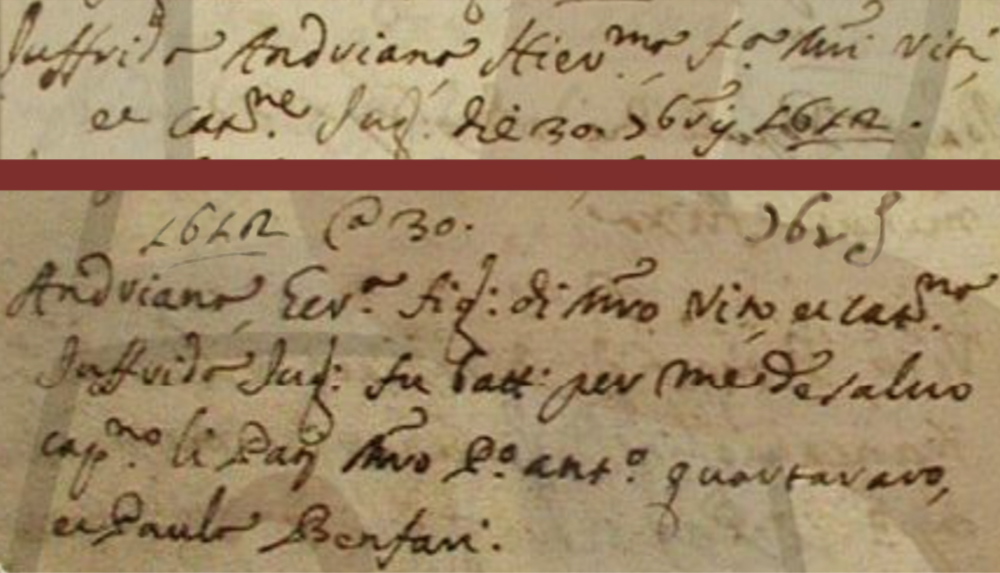 Juffrido Andriano Hier.mo f.o mri Viti
et cat.ne Jug. die 30. 9bris 1612.
1612 @ 30. 9br
Andriano Ger.o fig: di mro Vito et cat.na
Juffrido Jug: fu batt: per me de salvo
capno li Pat mro P.o ant.o quartararo,
et Paulo Benfari.